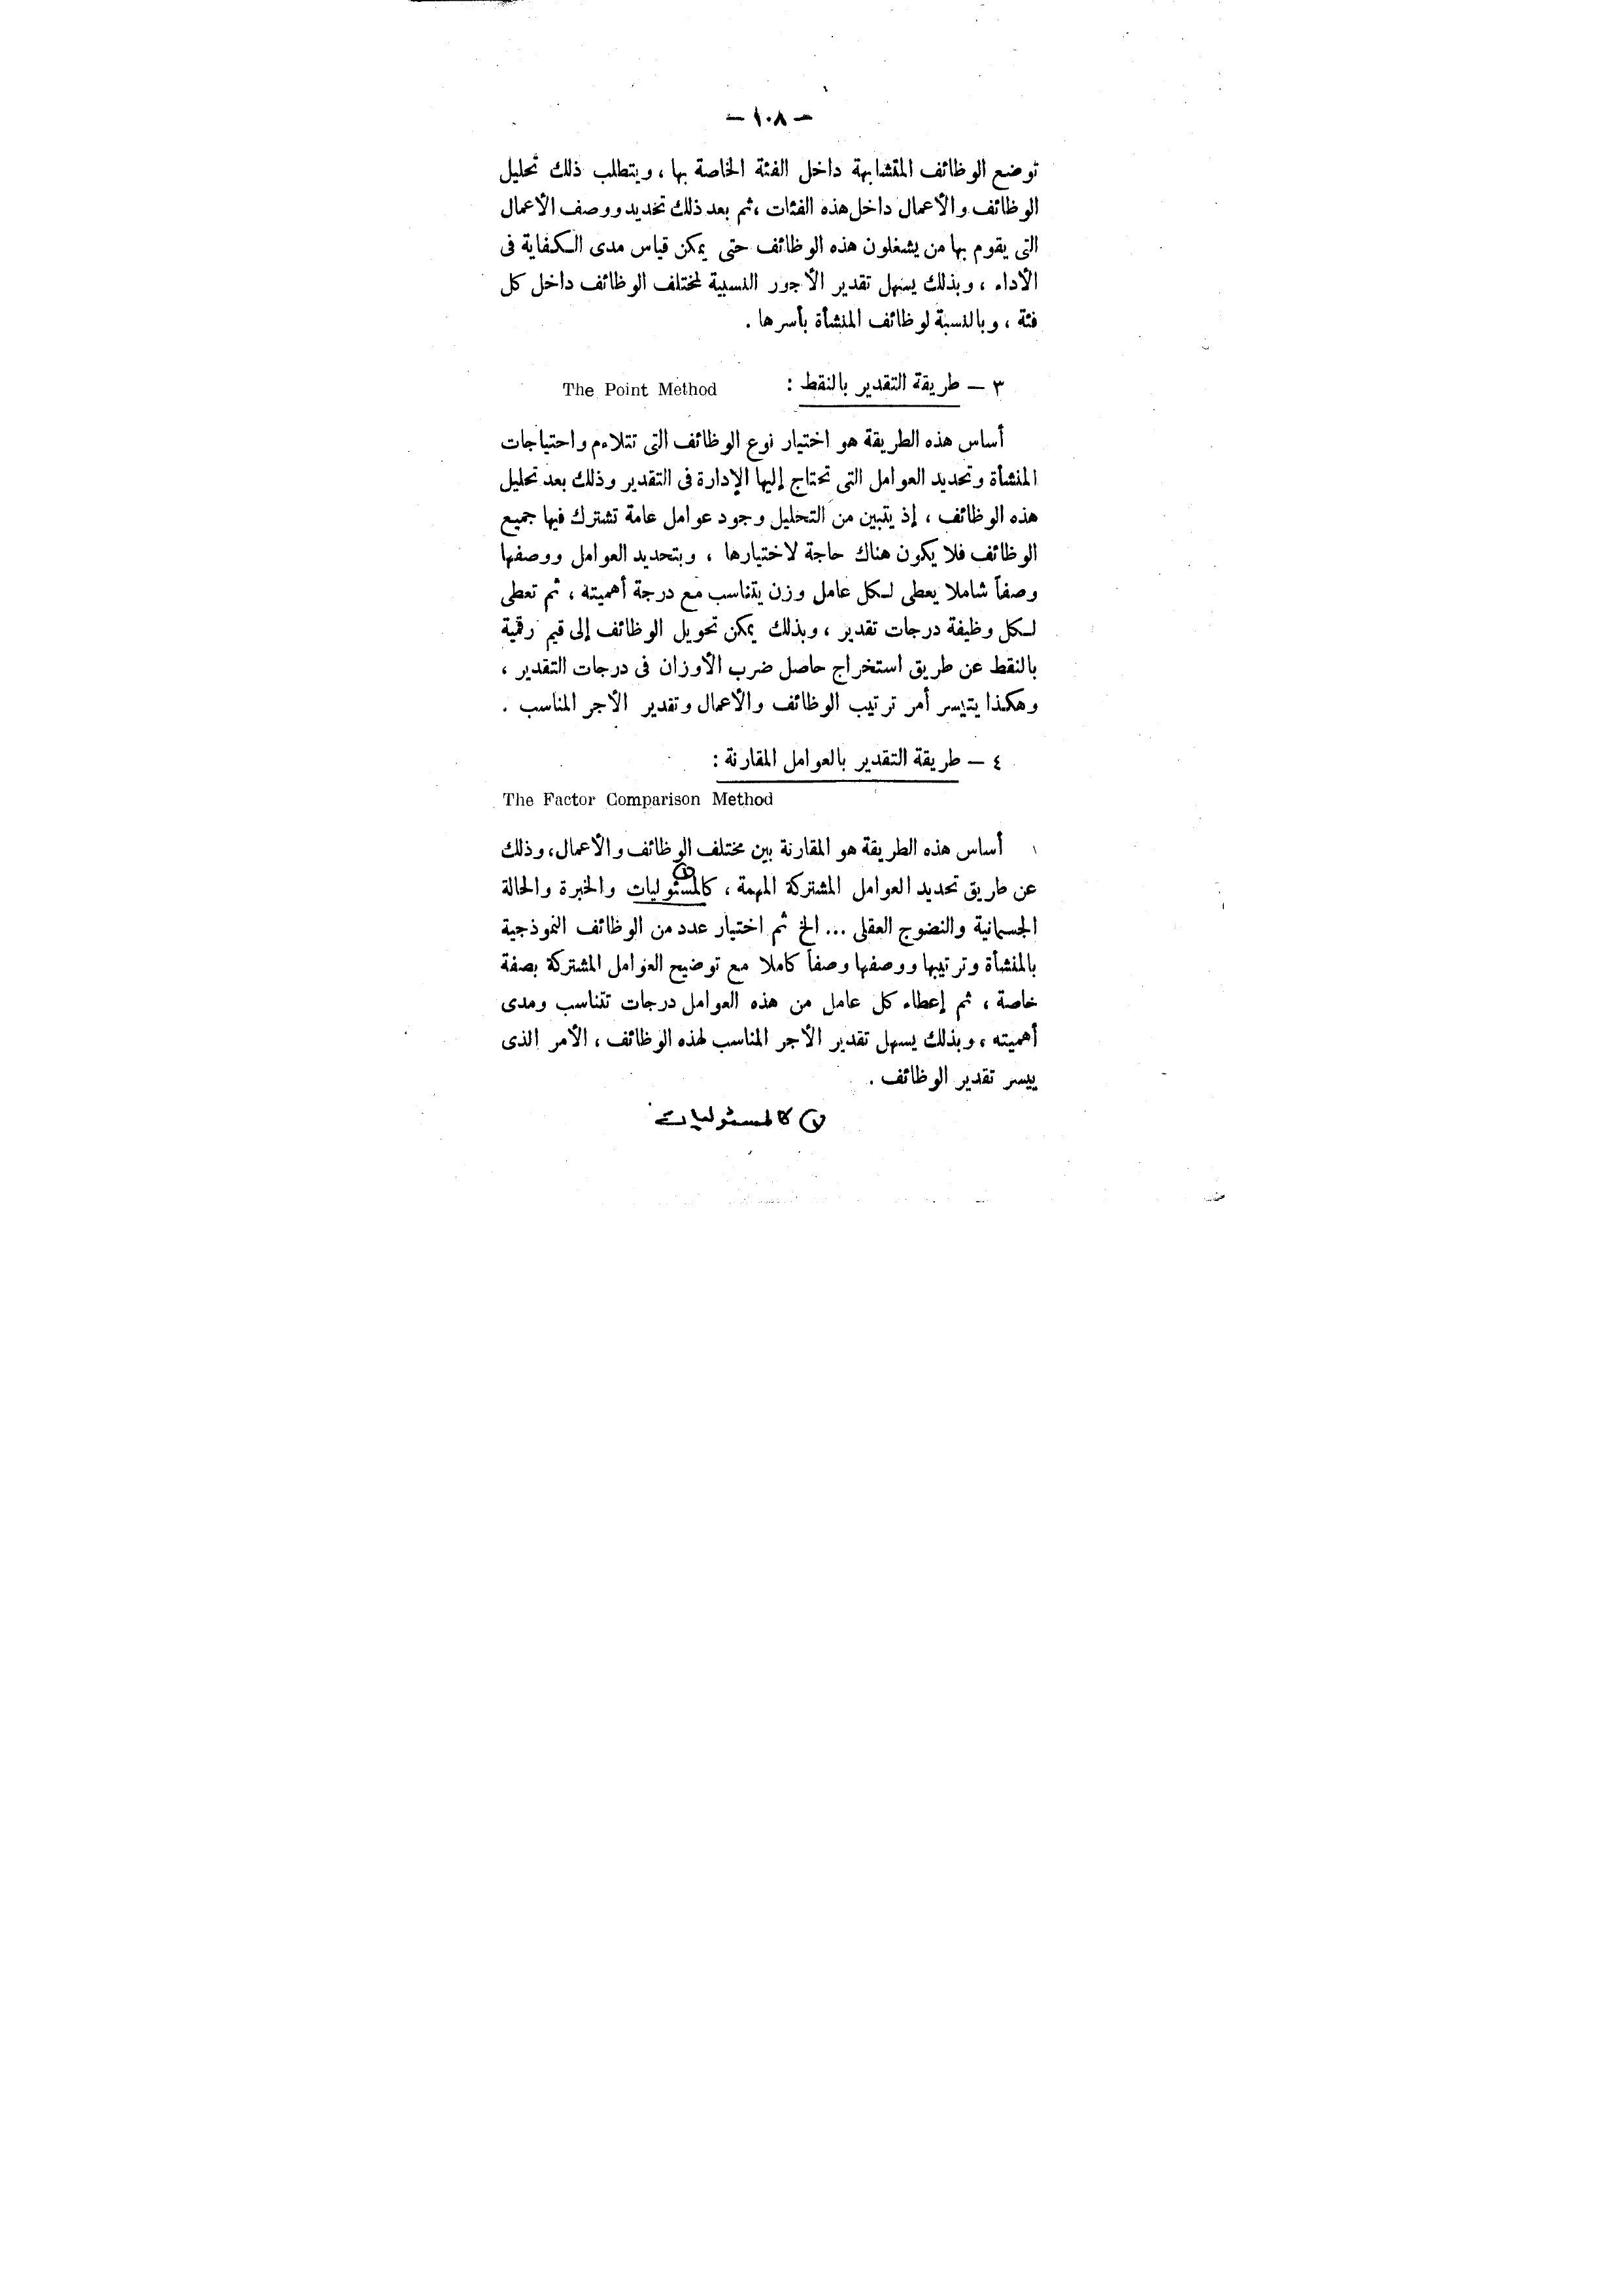 — ١٠٨ —
توضع الوظائف المتشابهة داخل الفئة الخاصة بها ، ويتطلب ذلك تحليل
الوظائف والأعمال داخل هذه الفئات ، ثم بعد ذلك تحديد ووصف الأعمال
التى يقوم بها من يشغلون هذه الوظائف حتى يمكن قياس مدى الكفاية فى
الأداء ، وبذلك يسهل تقدير الأجور النسبية لمختلف الوظائف داخل كل
فئة ، وبالنسبة لوظائف المنشأة بأسرها .
٣ — طريقة التقدير بالنقط : The Point Method
أساس هذه الطريقة هو اختيار نوع الوظائف التى تتلاءم واحتياجات
المنشأة وتحديد العوامل التى تحتاج إليها الإدارة فى التقدير وذلك بعد تحليل
هذه الوظائف ، إذ يتبين من التحليل وجود عوامل عامة تشترك فيها جميع
الوظائف فلا يكون هناك حاجة لاختيارها ، وبتحديد العوامل ووصفها
وصفاً شاملا يعطى لكل عامل وزن يتناسب مع درجة أهميته ، ثم تعطى
لكل وظيفة درجات تقدير ، وبذلك يمكن تحويل الوظائف إلى قيم رقمية
بالنقط عن طريق استخراج حاصل ضرب الأوزان فى درجات التقدير ،
وهكذا يتيسر أمر ترتيب الوظائف والأعمال وتقدير الأجر المناسب .
٤ — طريقة التقدير بالعوامل المقارنة :
The Factor Comparison Method
أساس هذه الطريقة هو المقارنة بين مختلف الوظائف والأعمال، وذلك
عن طريق تحديد العوامل المشتركة المهمة ، كالمسئوليات والخبرة والحالة
الجسمانية والنضوج العقلى ... الخ ثم اختيار عدد من الوظائف النموذجية
بالمنشأة وترتيبها ووصفها وصفاً كاملا مع توضيح العوامل المشتركة بصفة
خاصة ، ثم إعطاء كل عامل من هذه العوامل درجات تتناسب ومدى
أهميته ، وبذلك يسهل تقدير الأجر المناسب لهذه الوظائف ، الأمر الذى
ييسر تقدير الوظائف .
(١) كالمسئوليات